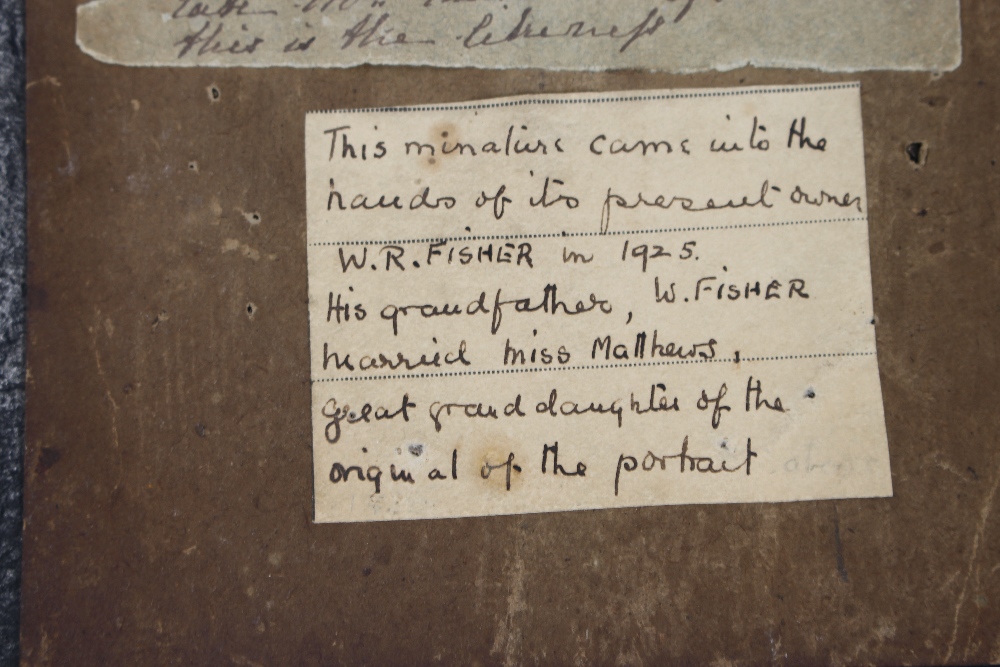 this is the likeness
This minature came into the
hands of its present owner
W.R. FISHER in 1925.
His grandfather, W. FISHER
married Miss Matthews,
Great grand daughter of the
original of the portrait